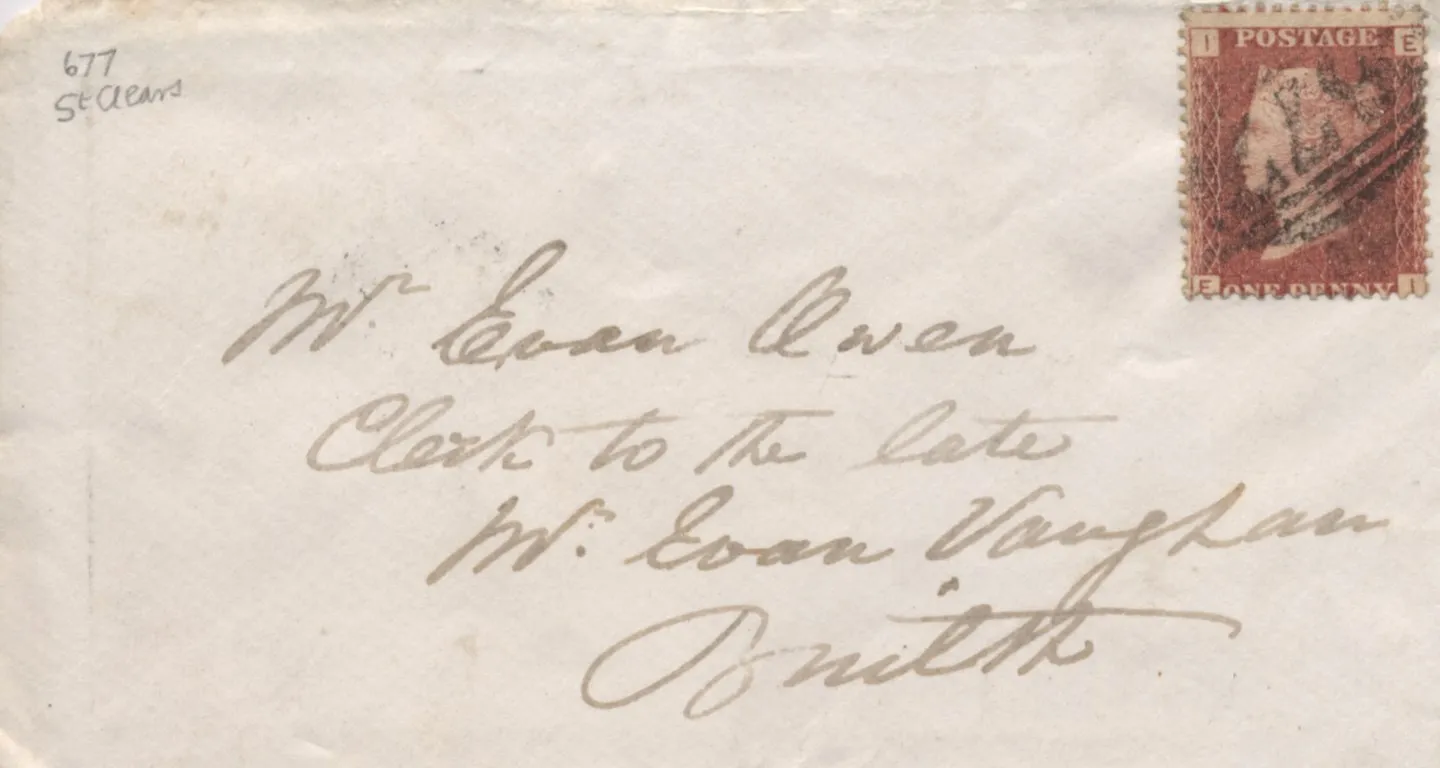 677
St Clears
I POSTAGE E
E ONE PENNY I
Mr Evan Owen
Clerk to the late
Mr. Evan Vaughan
Builth